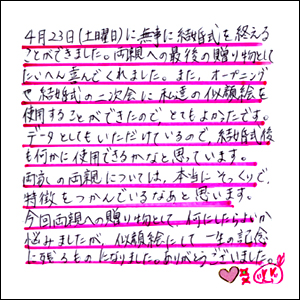 4月23日(土曜日)に無事に結婚式を終える
ことができました。両親への最後の贈り物として
たいへん喜んでくれました。また、オープニング
や結婚式の二次会に私達の似顔絵を
使用することができたので、とてもよかったです。
データとしてもいただけているので、結婚式後
も何かに使用できるかなと思っています。
両家の両親については、本当にそっくりで、
特徴をつかんでいるなあと思います。
今回両親への贈り物として、何にしたらよいか
悩みましたが、似顔絵にして一生の記念
に残るものになりました。ありがとうございました。